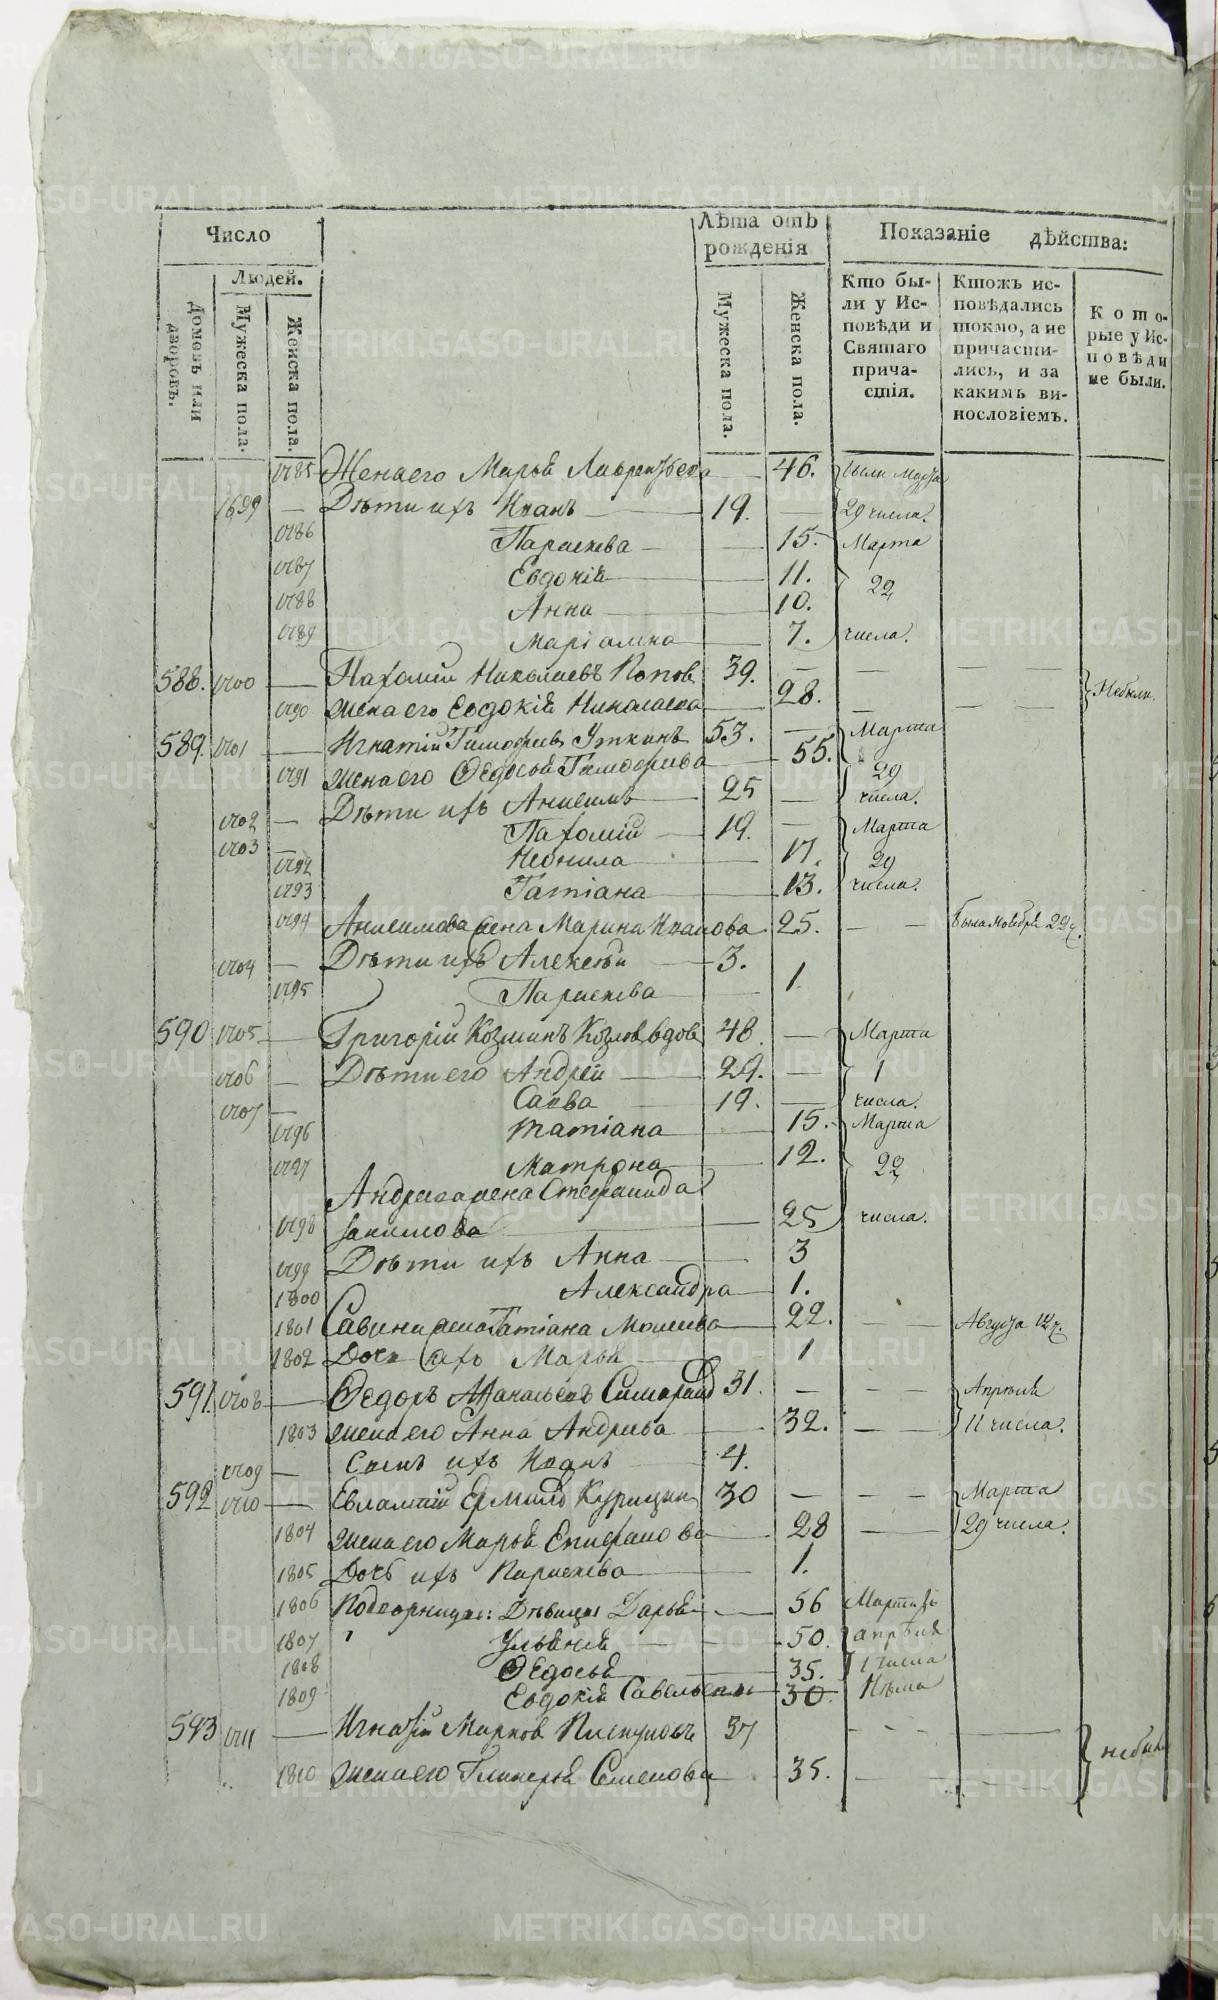 Число
Лѣта отъ рожденія
Показаніе дѣйства:
Людей.
Домовъ или дворовъ.
Мужеска пола.
Женска пола.
Мужеска пола.
Женска пола.
Кто бы-
ли у Ис-
повѣди и
Святаго
прича-
стія.
Ктожъ ис-
повѣдались
токмо, а не
причасти-
лись, и за
какимъ ви-
нословіемъ.
Кото-
рые у Ис-
повѣди
не были.
1785 Жена его Марья Лаврентьева 46. были Марта
1699 Дѣти ихъ Иванъ 19. 29 числа.
1786 Параскева 15. Марта
1787 Евдокія 11. 22
1788 Анна 10.
1789 Маріамна 7. числа.
588. 1700 Пахомій Николаевъ Попов 39. Небыли
1790 Жена его Евдокія Николаева 28.
589. 1701 Игнатій Тимофеев Уткинъ 53. Марта
1791 Жена его Ѳедосья Тимофеива 55. 29
1702 Дѣти ихъ Анисимъ 25 числа.
1703 Пахомій 19. Марта
1792 Неонила 17. 29
1793 Татіана 13. числа.
1794 Анисимова жена Марина Иванова 25. была Ноября 29 ч.
1704 Дѣти ихъ Алексѣй 3.
1795 Параскева 1
590 1705 Григорій Козминъ Козлов вдов 48. Марта
1706 Дѣти его Андрей 29. 1
1707 Савва 19. числа.
1796 Татіана 15. Марта
1797 Матрона 12. 22
Андреева жена Стефанида
1798 25 числа.
1799 Дѣти ихъ Анна 3
1800 Александра 1.
1801 Савина жена Татіана 22. Августа 12 ч.
1802 Дочь ихъ Марья 1
591. 1708 Ѳедоръ 31. Апрѣля
1803 Жена его Анна Андреива 32. 11 числа.
1709 Сынъ ихъ Иоанъ 4.
592 1710 Евлампій Ермилов Курицин 30 Марта
1804 Жена его Марья Епифанова 28 29 числа.
1805 Дочь ихъ Параскева 1.
1806 Дѣвицы Дарья 56
1807 Ульянія 50. апрѣля
1808 Ѳедосья 35. 1 числа
1809 Евдокія 30.
593 1711 Игнатій Марков 37 небыли
1810 Жена его Гликерья Семенова 35.
METRIKI.GASO-URAL.RU